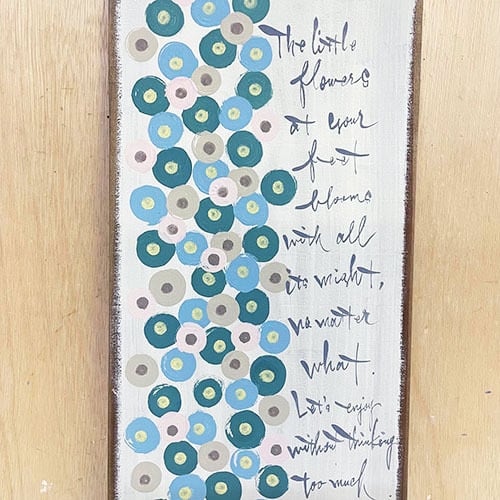 The little
flowers
at your
feet
blooms
with all
its might,
no matter
what.
Let's enjoy
without thinking
too much